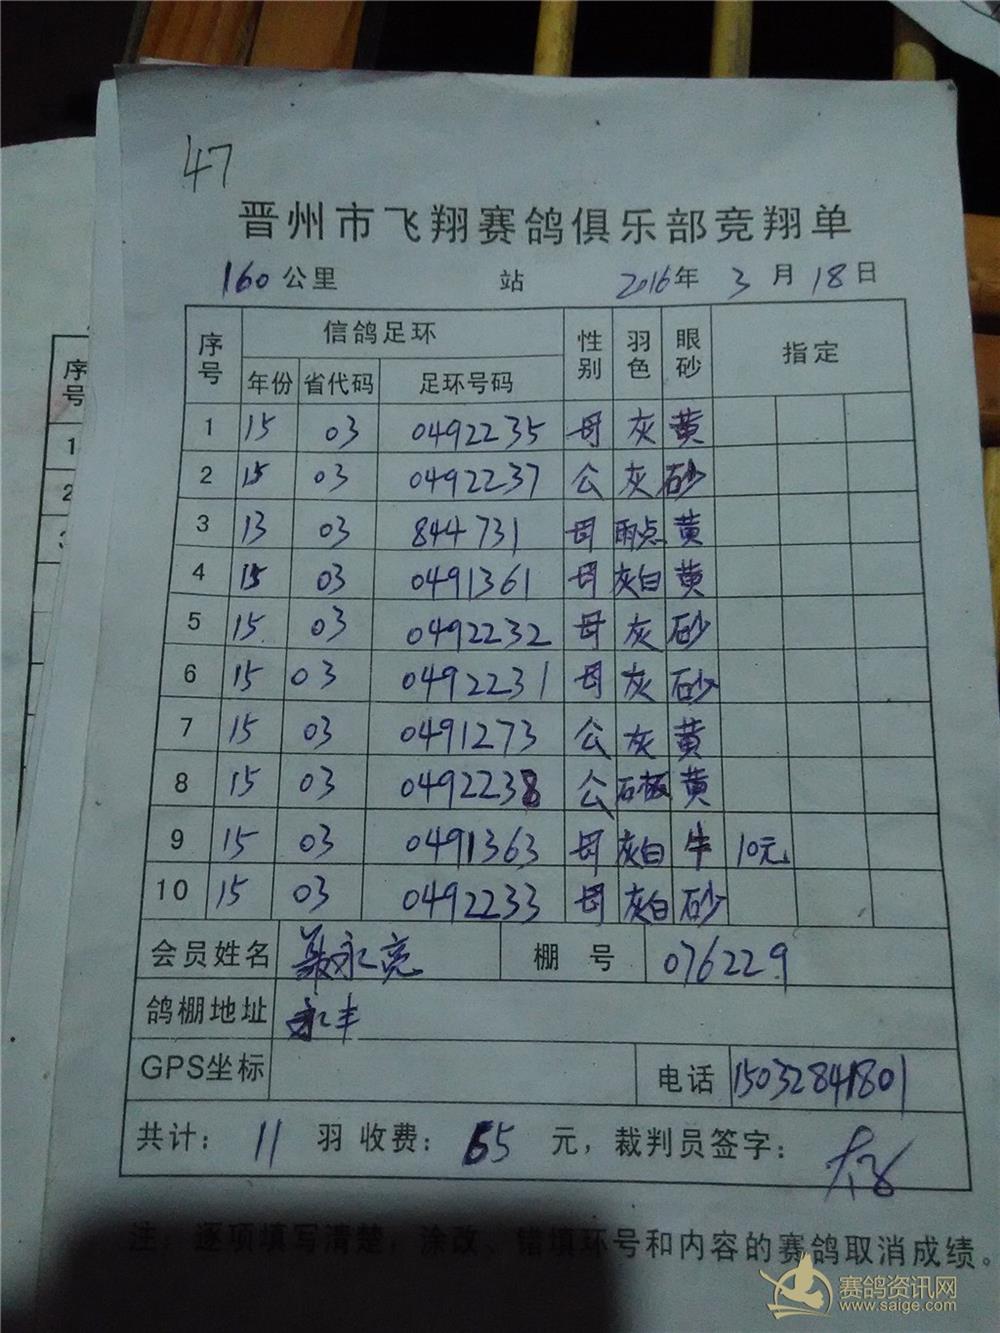 47
晋州市飞翔赛鸽俱乐部竞翔单
160 公里 站 2016年 3 月 18 日
序号 信鸽足环 性别 羽色 眼砂 指定
年份 省代码 足环号码
1 15 03 0492235 母 灰 黄
2 15 03 0492237 公 灰 砂
3 13 03 844731 母 雨点 黄
4 15 03 0491361 母 灰白 黄
5 15 03 0492232 母 灰 砂
6 15 03 0492231 母 灰 砂
7 15 03 0491273 公 灰 黄
8 15 03 0492238 公 石板 黄
9 15 03 0491363 母 灰白 牛 10元
10 15 03 0492233 母 灰白 砂
会员姓名 永亮 棚 号 076229
鸽棚地址 永丰
GPS坐标 电话 15032841801
共计: 11 羽 收费: 65 元, 裁判员签字:
注: 逐项填写清楚, 涂改、错填环号和内容的赛鸽取消成绩。
序号
1
2
3
赛鸽资讯网
www.saige.com